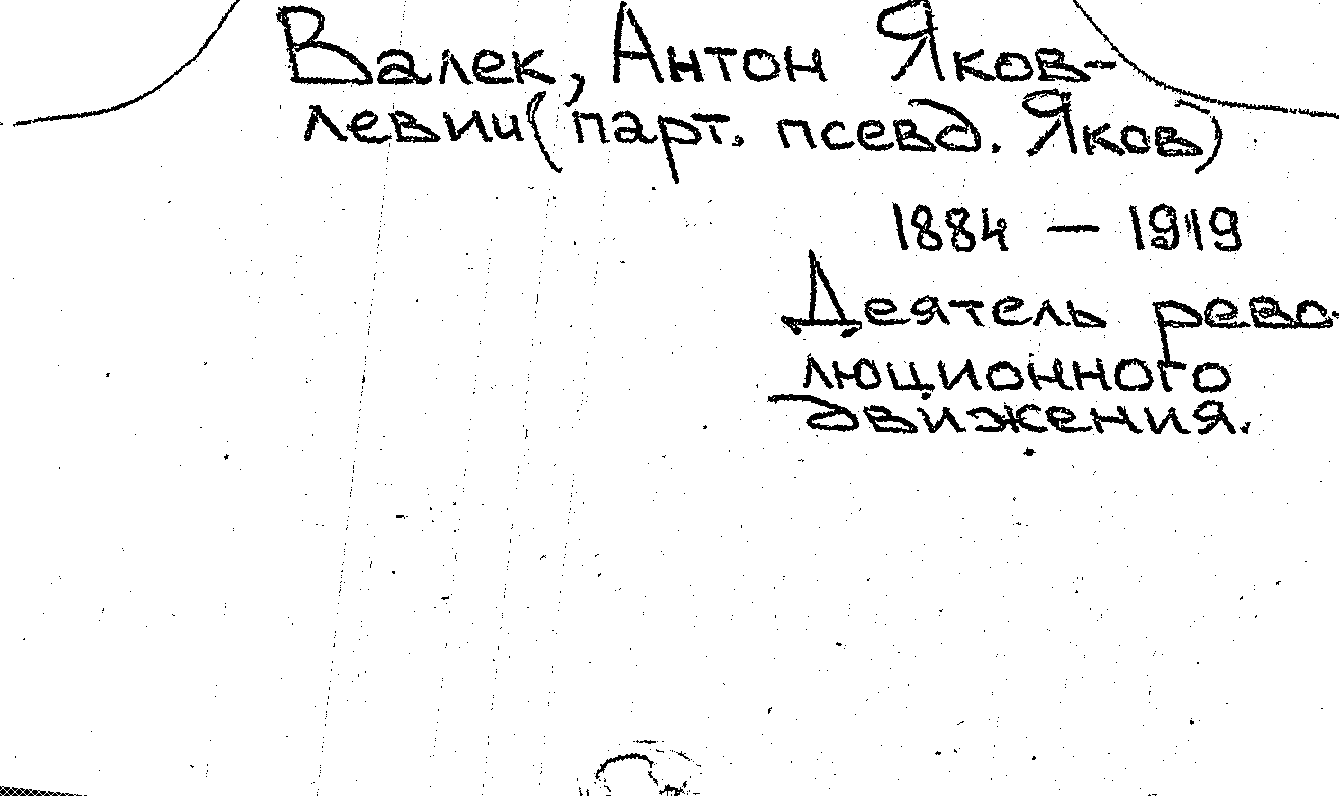 Валек, Антон Яков-
левич (парт. псевд. Яков)
1884 — 1919
Деятель рево-
люционного
движения.